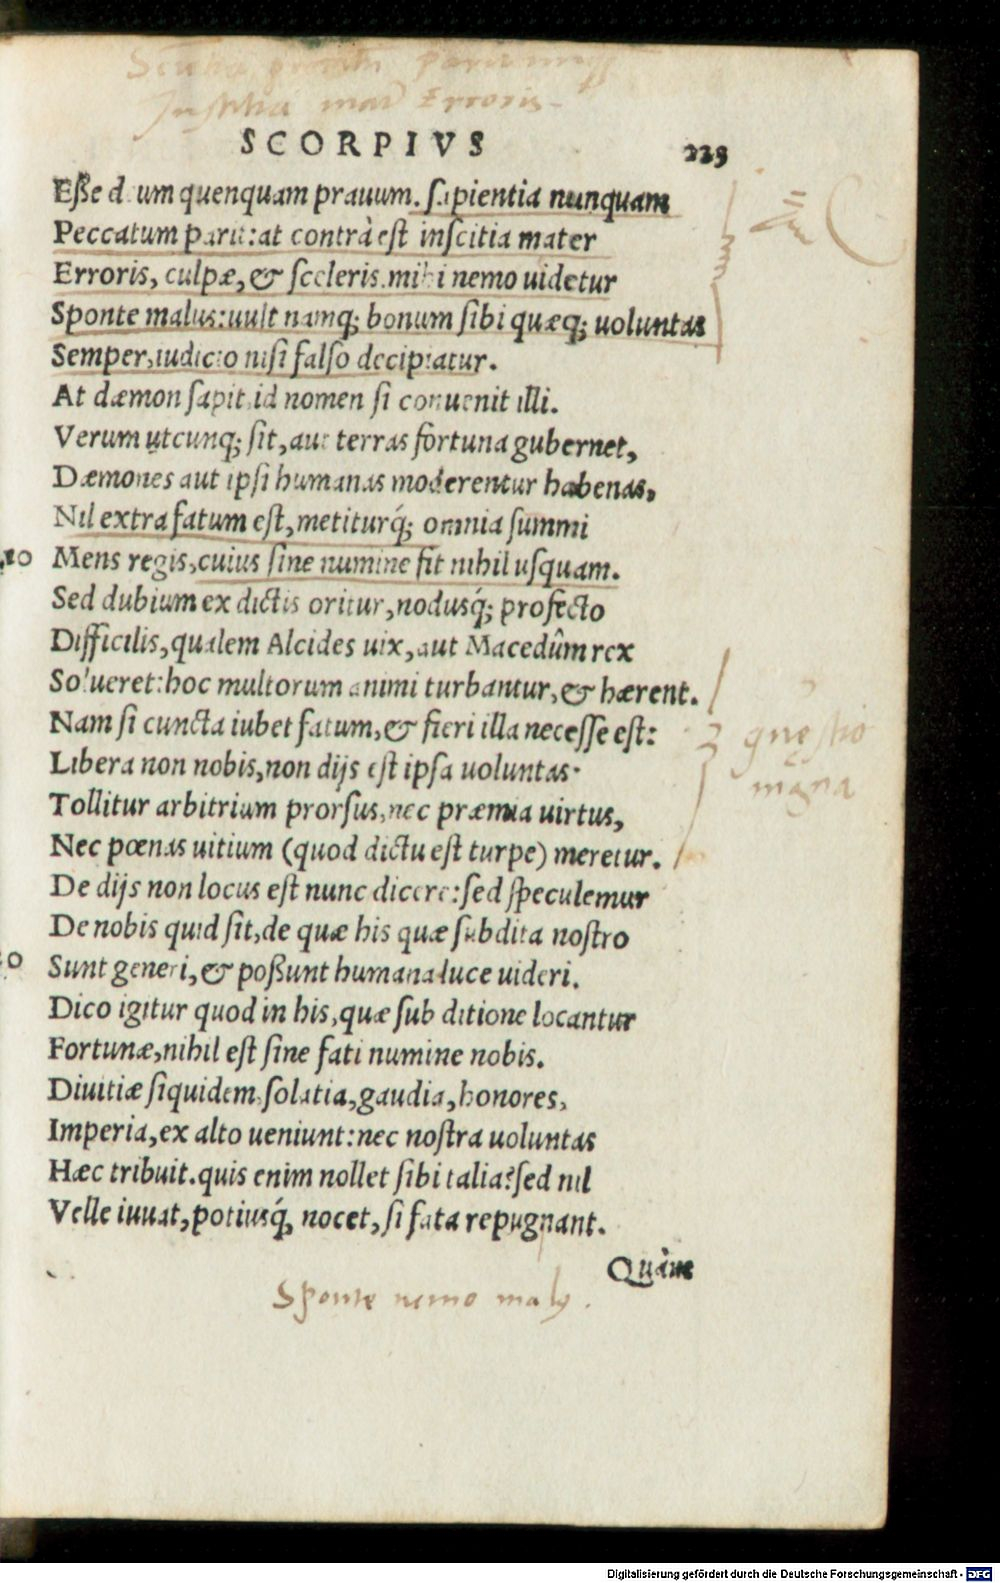 Inscitia mater Erroris
SCORPIVS 229
Eſſe d um quenquam prauum. ſapientia nunquam
Peccatum parit: at contrà eſt inſcitia mater
Erroris, culpæ, & ſceleris. mihi nemo uidetur
Sponte malus: uult namq; bonum ſibi quæq; uoluntas
Semper, iudicio niſi falſo decipiatur.
At dæmon ſapit, id nomen ſi conuenit illi.
Verum utcunq; ſit, aut terras fortuna gubernet,
Dæmones aut ipſi humanas moderentur habenas,
Nil extra fatum eſt, metiturq́; omnia ſummi
10 Mens regis, cuius ſine numine fit nihil uſquam.
Sed dubium ex dictis oritur, nodusq́; profecto
Difficilis, qualem Alcides uix, aut Macedûm rex
Solueret: hoc multorum animi turbantur, & hærent.
Nam ſi cuncta iubet fatum, & fieri illa neceſſe eſt:
quęstio
Libera non nobis, non dijs eſt ipſa uoluntas.
magna
Tollitur arbitrium prorſus, nec præmia uirtus,
Nec pœnas uitium (quod dictu eſt turpe) meretur.
De dijs non locus eſt nunc dicere: ſed ſpeculemur
De nobis quid ſit, de quæ his quæ ſubdita noſtro
20 Sunt generi, & poſſunt humana luce uideri.
Dico igitur quod in his, quæ ſub ditione locantur
Fortunæ, nihil eſt ſine fati numine nobis.
Diuitiæ ſiquidem, ſolatia, gaudia, honores,
Imperia, ex alto ueniunt: nec noſtra uoluntas
Hæc tribuit. quis enim nollet ſibi talia? ſed nil
Velle iuuat, potiusq́, nocet, ſi fata repugnant.
Quàm
Sponte nemo malꝰ.
Digitalisierung gefördert durch die Deutsche Forschungsgemeinschaft - DFG